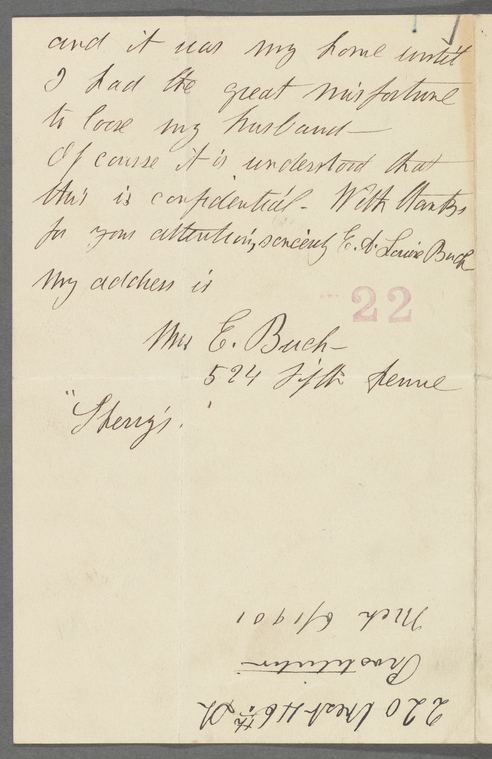 and it was my home until
I had the great misfortune
to loose my husband—
Of course it is understood that
this is confidential - With thanks
for your attention, sincerely E. A. Louise Buch
My address is
22
Mrs E. Buch—
524 Fifth Avenue
"Sherry's."
220 West 46th St
Prostitution
Mch 6/1901